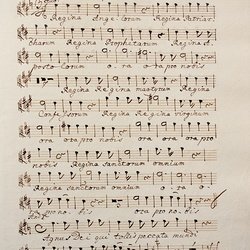 Regina Angelorum Regina Patriar,
charum Regina Prophetarum Regina A,
postolorum o ra ora pro nobis
Regina Regina martyrum Regina
Confessorum Regina Regina virginum
ora pro nobis ora ora pro
nobis Regina Sanctorum omnium
Regina Sanctorum omnium o ra o
pro nobis ora pro nobis
Agnus Dei qui tollis peccata mundi